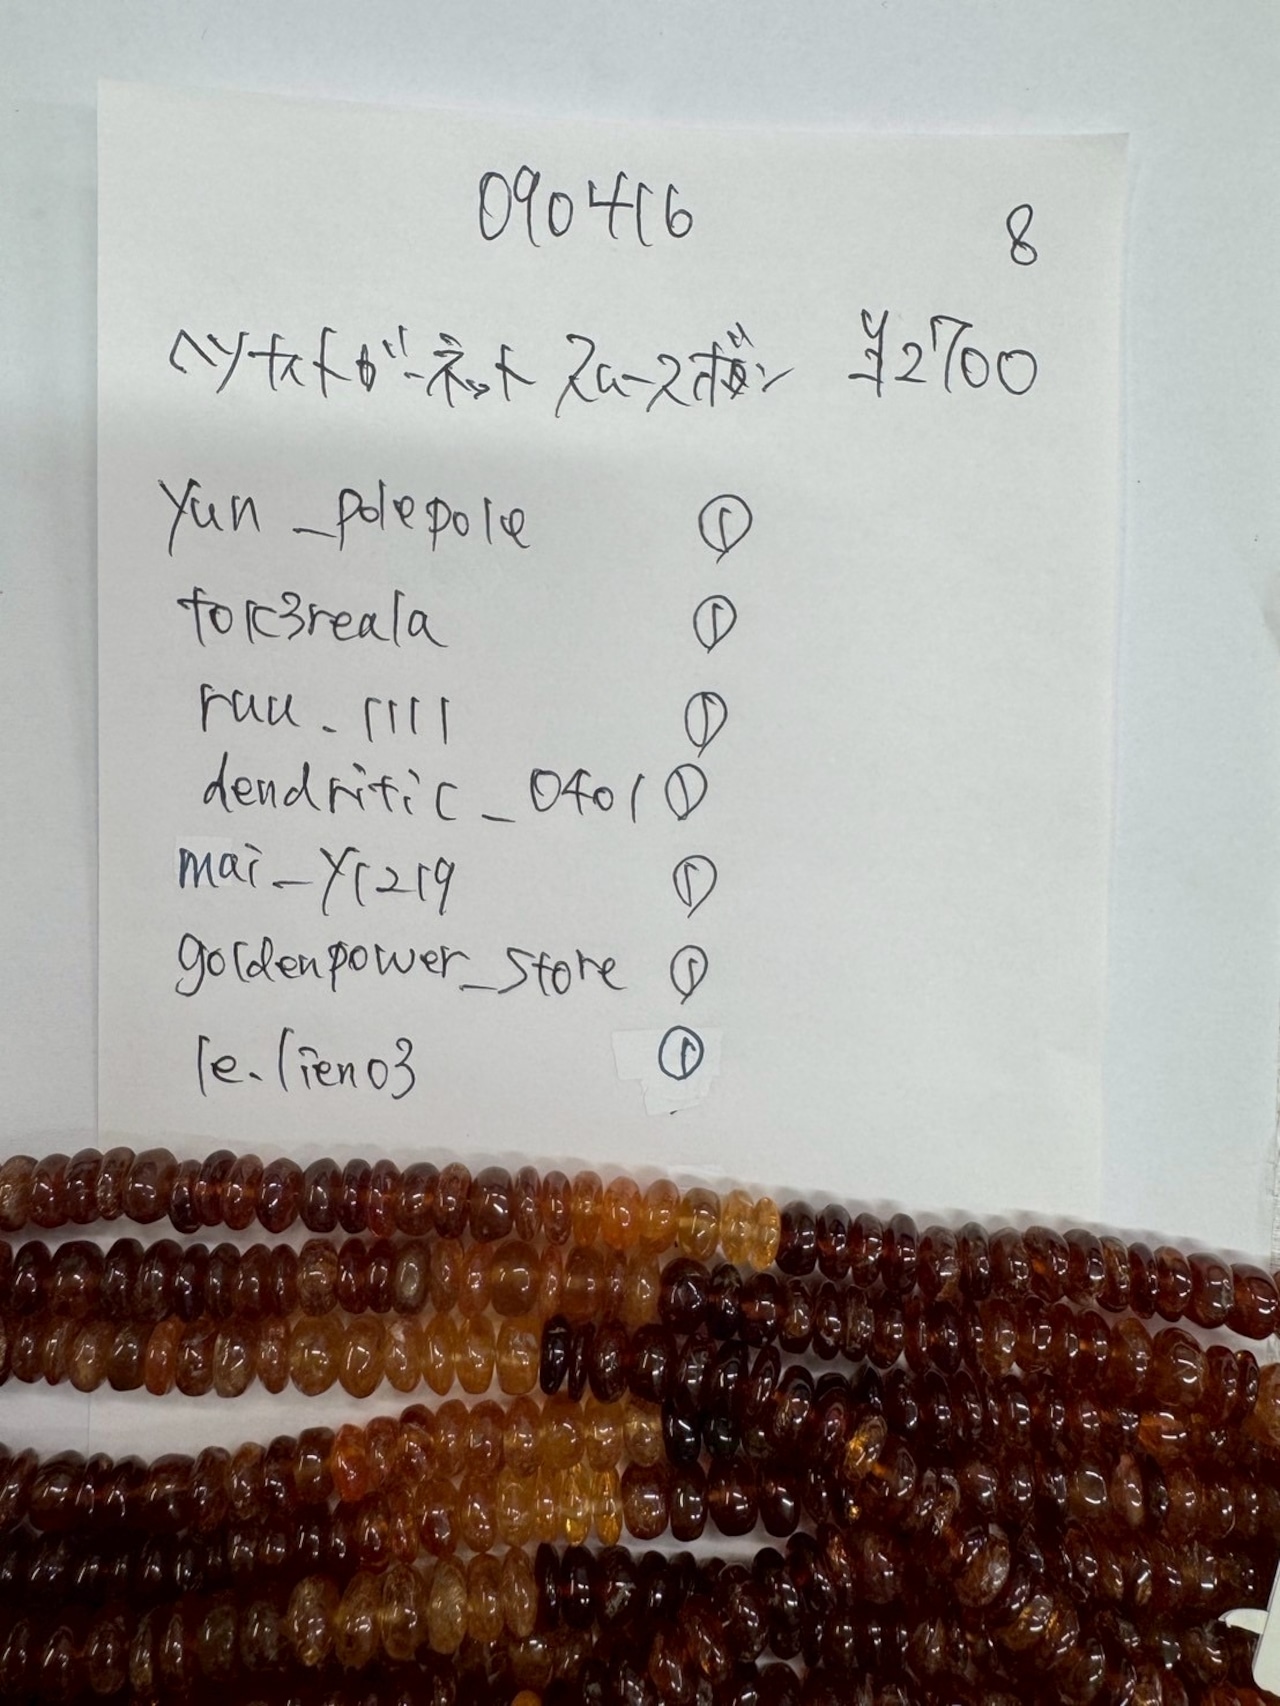 090416
8
ヘソナイトガーネット スムースボタン ¥2700
yun_polepole ①
tok3reala ①
ruu.1111 ①
dendritic_0401 ①
mai_y1219 ①
goldenpower_store ①
le.lien03 ①